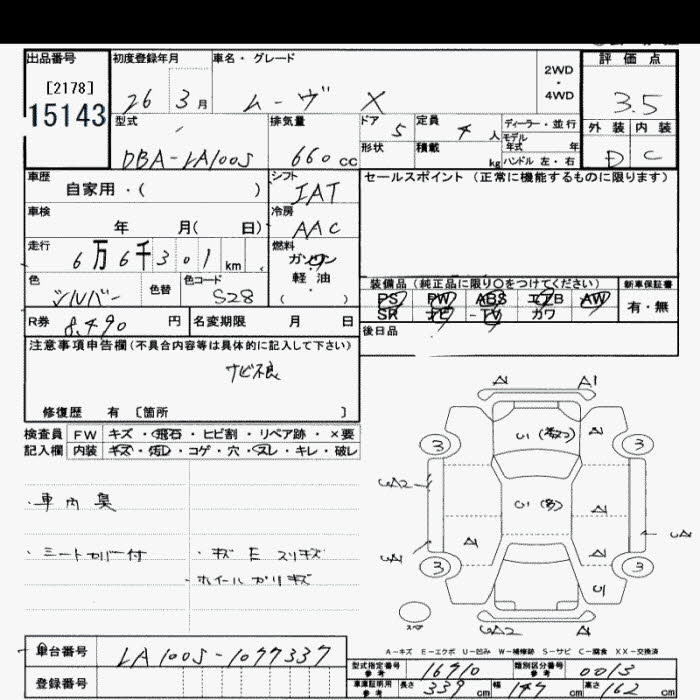 出品番号 初度登録年月 車名・グレード 評価点
[2178] 2WD
・
4WD
15143 26 3月 ムーヴ X 3.5
型式 排気量 ドア 5 定員 4人 ディーラー・並行 外装 内装
モデル年式 年
DBA-LA100S 660cc 形状 積載 kg ハンドル 左・右 D C
車歴 シフト セールスポイント(正常に機能するものに限ります)
自家用・( ) IAT
車検 冷房
年 月( 日) AAC
走行 燃料
6万6千301km ガソリン
軽油
( )
色 色替 色コード 装備品(純正品に限り○をつけてください) 新車保証書
シルバー S28 PS PW ABS エアB AW 有・無
SR ナビ TV カワ
R券 8,490円 名変期限 月 日 後日品
注意事項申告欄(不具合内容等は具体的に記入して下さい)
サビ不良
修復歴 有 〔箇所 〕
検査員 FW キズ・飛石・ヒビ割・リペア跡・×要
記入欄 内装 キズ・汚レ・コゲ・穴・スレ・キレ・破レ
・車内臭
・シートカバー付
・キズ E スリキズ
・ホイールガリキズ
A A1
3 A 3
A2 A
A A
3 A 3
スペア A2 A
A-キズ E-エクボ U-凹み W-補修跡 S-サビ C-腐食 XX-交換済
車台番号 LA100S-1077337
登録番号
型式指定番号 参考 16710 類別区分番号 参考 0013
車庫証明用 参考 長さ 339cm 幅 147cm 高さ 162cm